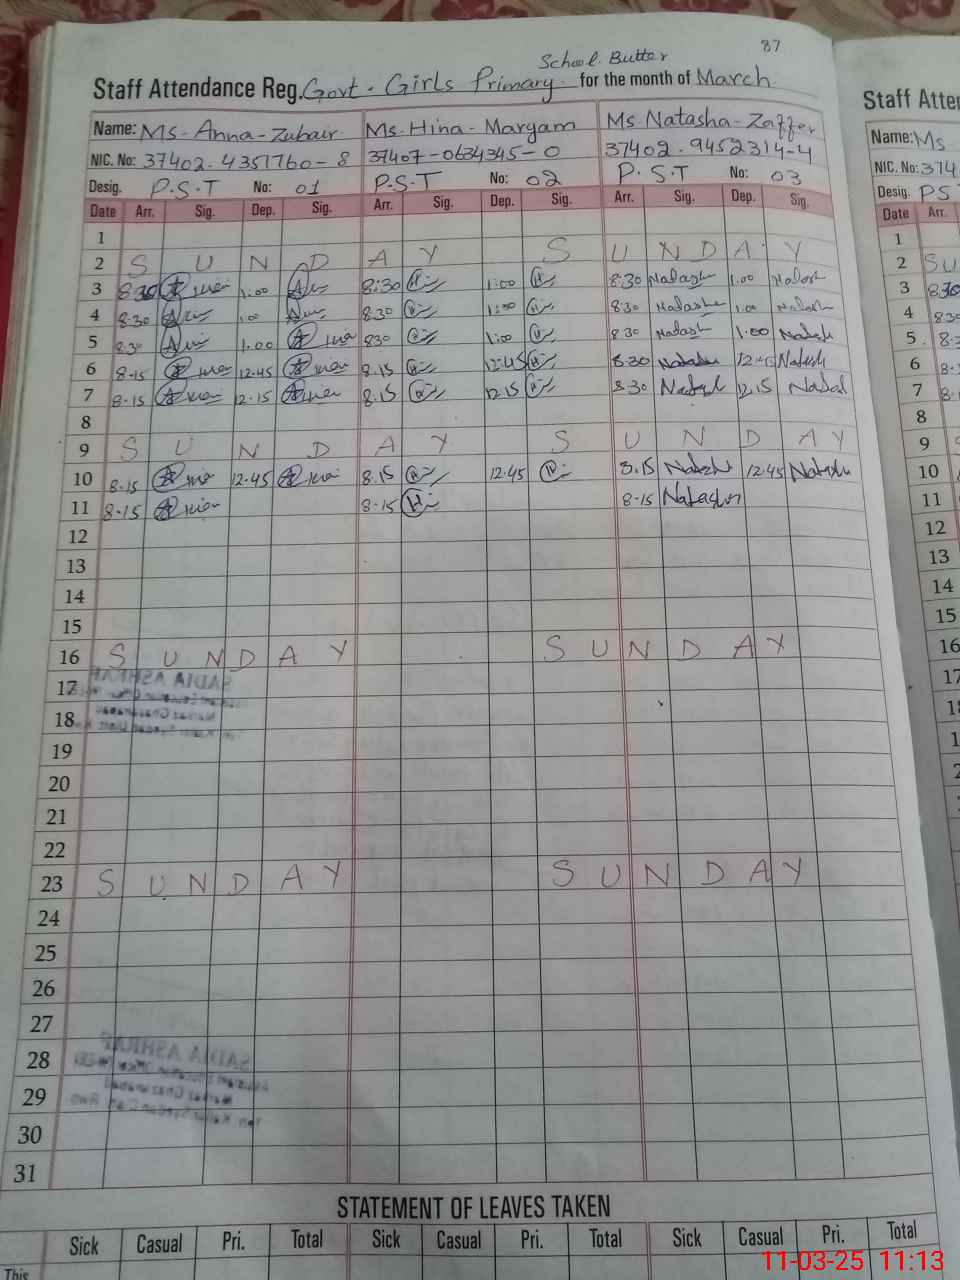 87
School Butter
Staff Attendance Reg. Govt. Girls Primary for the month of March
Name: Ms. Anna-Zubair Ms. Hina-Maryam Ms Natasha-Zaffer
NIC. No: 37402-4351760-8 37407-0634345-0 37402-9452314-4
Desig. P.S.T No: 01 P.S.T No: 02 P.S.T No: 03
Date Arr. Sig. Dep. Sig. Arr. Sig. Dep. Sig. Arr. Sig. Dep. Sig.
1
2 S U N D A Y S U N D A Y
3 8:30 1:00 8:30 1:00 8:30 1:00
4 8:30 1:00 8:30 1:00 8:30 1:00
5 8:30 1:00 830 1:00 8:30 1:00
6 8-15 12-45 8.15 12:45 8:30
7 8-15 12-15 8.15 12.15 8:30 12.15
8
9 S U N D A Y S U N D A Y
10 8-15 12.45 8.15 12.45 8.15 12.45
11 8-15 8-15 8-15
12
13
14
15
16 S U N D A Y S U N D A Y
17
18
19
20
21
22
23 S U N D A Y S U N D A Y
24
25
26
27
28
29
30
31
SADIA ASHRAF
SADIA ASHRAF
STATEMENT OF LEAVES TAKEN
Sick Casual Pri. Total Sick Casual Pri. Total Sick Casual Pri. Total
This
Staff Atte
Name: Ms
NIC. No: 374
Desig. PS
Date Arr.
1
2 SU
3 8:30
4 830
5
6
7
8
9 S
10
11
12
13
14
15
16
17
11-03-25 11:13